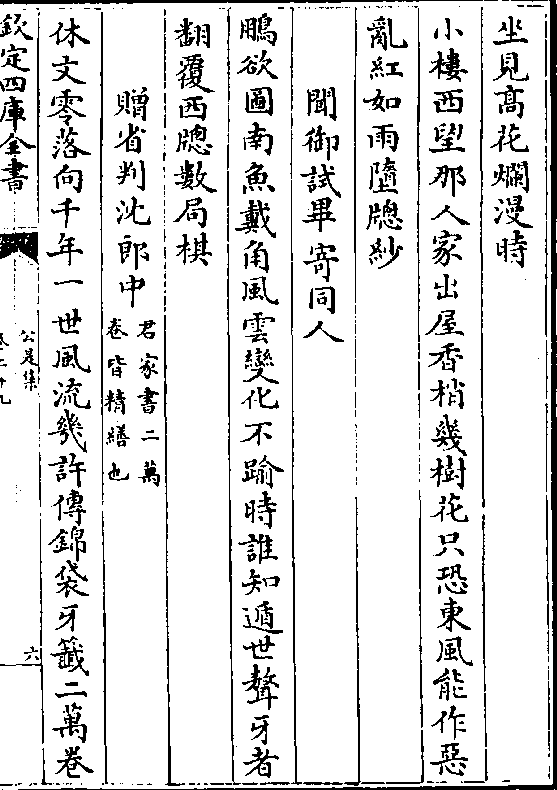 坐見髙花爛漫時
小樓西望那人家出屋香梢幾樹花只恐東風能作惡
亂紅如雨墮牕紗
聞御試畢寄同人
鵬欲圖南魚戴角風雲變化不踰時誰知遁世聱牙者
翻覆西牕數局棋
贈省判沈郎中
君家書二萬
卷皆精繕也
休文零落向千年一世風流幾許傳錦袋牙籤二萬卷
欽定四庫全書
公是集
卷二十九
六